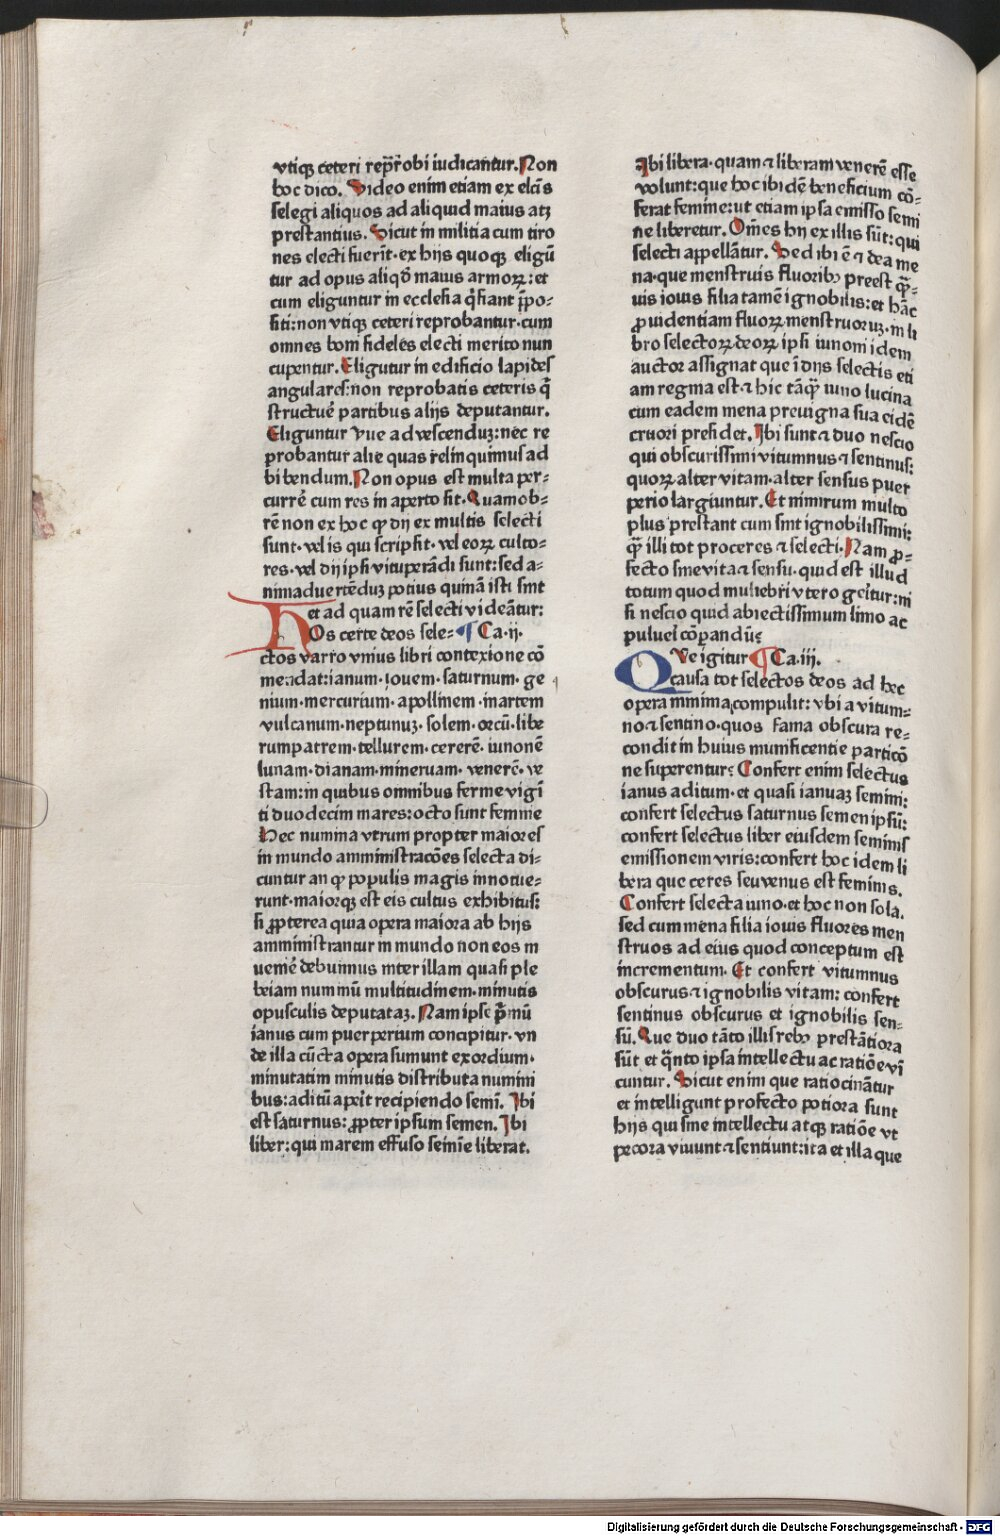 vtiqꝫ ceteri repr̃obi iudicantur. Non
hoc dico. Video enim etiam ex elc̃is
selegi aliquos ad aliquid maius atꝫ
prestantius. Sicut in militia cum tiro
nes electi fuerīt· ex hijs quoqꝫ eligū
tur ad opus aliqd̄ maius armoꝝ: et
cum eliguntur in ecclesia q̄ fiant p̄po-
siti: non vtiqꝫ ceteri reprobantur· cum
omnes boni fideles electi merito nun
cupentur. Eligutur in edificio lapides
angulares: non reprobatis ceteris q̄
structuē partibus alijs deputantur.
Eliguntur vue ad vescenduꝫ: nec re
probantur alie quas relinquimus ad
bibendum. Non opus est multa per-
currē cum res in aperto sit. Quamob-
rē non ex hoc ꝙ dij ex multis selecti
sunt· vel is qui scripsit· vel eoꝝ culto-
res· vel dij ipsi vituperādi sunt: sed a-
nimaduertēduꝫ potius quinā isti sint
et ad quam rē selecti videātur:
HOs certe deos sele- ¶ Ca. ij.
ctos varro vnius libri contexione cō
mendat: ianum· iouem· saturnum· ge
nium· mercurium· apollinem· martem
vulcanum· neptunuꝫ· solem· orcū· libe
rum patrem· tellurem· cererē· iunonē
lunam· dianam· mineruam· venerē· ve
stam: in quibus omnibus ferme vigī
ti duodecim mares: octo sunt femine
Hec numina vtrum propter maiores
in mundo amministracōes selecta di-
cuntur an ꝙ populis magis innotue-
runt· maiorqꝫ est eis cultus exhibitus:
si ꝓpterea quia opera maiora ab hijs
amministrantur in mundo non eos in
uenīe debuimus inter illam quasi ple
beiam numinū multitudinem· minutis
opusculis deputataꝫ. Nam ipse p̄mū
ianus cum puerperium concipitur· vn
de illa cūcta opera sumunt exordium·
minutatim minutis distributa numini
bus: aditū apīt recipiendo semī. Ibi
est saturnus: ꝓpter ipsum semen. Ibi
liber: qui marem effuso semīe liberat.
Ibi libera· quam ⁊ liberam venerē esse
volunt: que hoc ibidē beneficium cō-
ferat femine: ut etiam ipsa emisso semi
ne liberetur. Om̄es hij ex illis sūt: qui
selecti appellātur. Sed ibi ē ⁊ dea me
na· que menstruis fluoribꝫ preest q̄ꝫ-
uis iouis filia tamē ignobilis: et hāc
ꝓuidentiam fluoꝝ menstruoruꝫ· in li
bro selectoꝝ deoꝝ ipsi iunoni idem
auctor assignat que ī dijs selectis eti
am regina est· ⁊ hic tāqꝫ iuno lucina
cum eadem mena preuigna sua eidē
cruori presidet. Ibi sunt ⁊ duo nescio
qui obscurissimi vitumnus ⁊ sentinus:
quoꝝ alter vitam· alter sensus puer
perio largiuntur. Et nimirum multo
plus prestant cum sint ignobilissimi:
q̄ꝫ illi tot proceres ⁊ selecti. Nam ꝓ-
fecto sine vita ⁊ sensu· quid est illud
totum quod muliebri vtero geritur: ni
si nescio quid abiectissimum limo ac
puluei cōparandū:
QVe igitur ¶ Ca. iii.
causa tot selectos deos ad hec
opera minima compulit: vbi a vitum-
no ⁊ sentino· quos fama obscura re-
condit in huius munificentie particō
ne superentur: Confert enim selectus
ianus aditum· et quasi ianuaꝫ semini:
confert selectus saturnus semen ipsū:
confert selectus liber eiusdem seminis
emissionem viris: confert hoc idem li
bera que ceres seu venus est feminis.
Confert selecta iuno· et hoc non sola.
sed cum mena filia iouis fluores men
struos ad eius quod conceptum est
incrementum. Et confert vitumnus
obscurus ⁊ ignobilis vitam: confert
sentinus obscurus et ignobilis sen-
sū. Que duo tāto illis rebꝫ prestātiora
sūt et q̄nto ipsa intellectu ac ratiōe vī
cuntur. Sicut enim que ratiocināntur
et intelligunt profecto potiora sunt
hijs qui sine intellectu atqꝫ ratiōe vt
pecora viuunt ⁊ sentiunt: ita et illa que
Digitalisierung gefördert durch die Deutsche Forschungsgemeinschaft - DFG